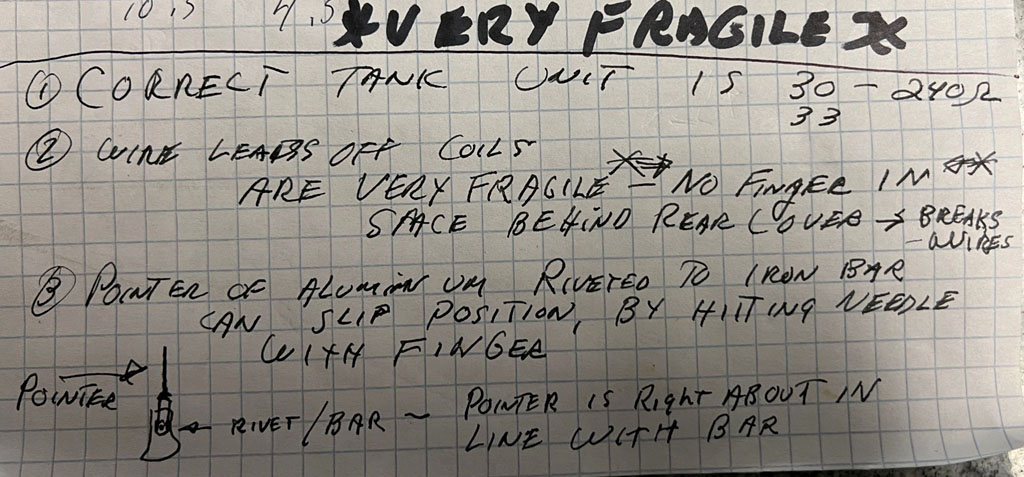 10.5 4.5
*VERY FRAGILE*
① CORRECT TANK UNIT IS 30 - 240Ω
33
② WIRE LEADS OFF COILS
ARE VERY FRAGILE - NO FINGER IN
SPACE BEHIND REAR COVER → BREAKS
- WIRES
③ POINTER OF ALUMINUM RIVETED TO IRON BAR
CAN SLIP POSITION, BY HITTING NEEDLE
WITH FINGER
POINTER
← RIVET/BAR ~ POINTER IS RIGHT ABOUT IN
LINE WITH BAR